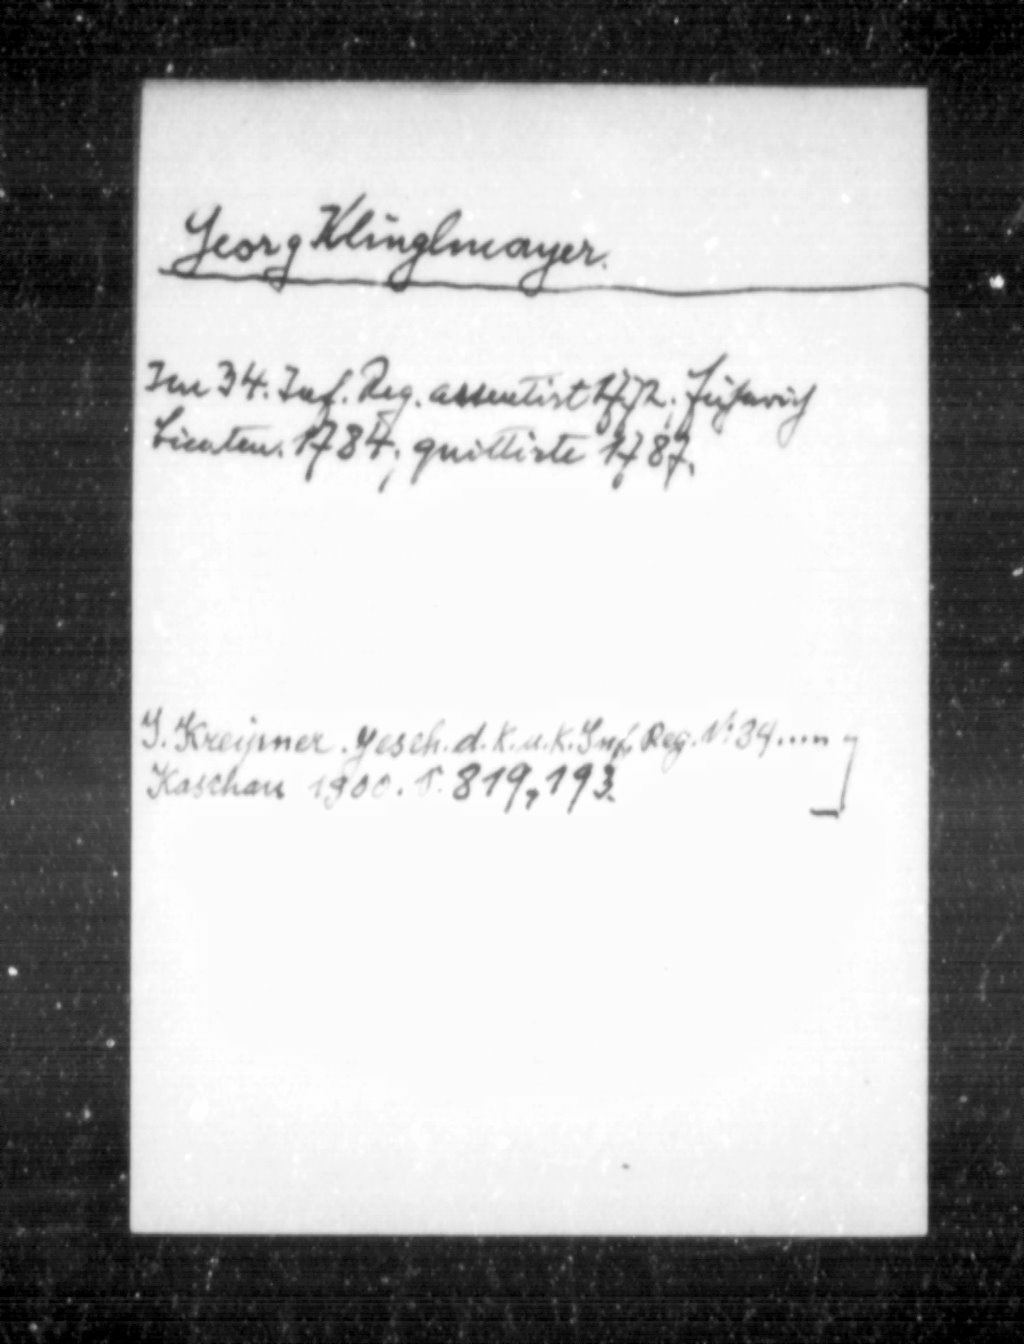 Georg Klinglmayer.
Im 34. Inf. Reg. assentirt Fähnrich
Lieuten. 1784, quittirte 1787.
J. Kreipner. Gesch. d. K. u. K. Inf. Reg. N: 34.....
Kaschau 1900. S. 819, 193.